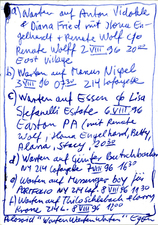 a) Warten auf Anton Vidokle
& Diana Fried mit Ilona En-
gelhardt + Renate Wolff c/o
Renate Wolff 2 VIII 96 20:00
East Village
b) Warten auf Manus Nigel
3 VIII 96 07:30 214 Lafayette
c) Warten auf Essen c/o Lisa
Stefanelli Estate 6 VIII 96
Easton PA (mit Renate
Wolff, Ilona Engelhard, Betty,
Alana, Stacy, 20:30
d) Warten auf
NY 214 Lafayette VIII 96 1630
e) Warten auf Messenger boy für
PORTFOLIO NY 214 Laf. 8 VIII 96 1130
f) Warten auf
214 Laf. 8 VIII 96 1100
"Warten Warten Warten"